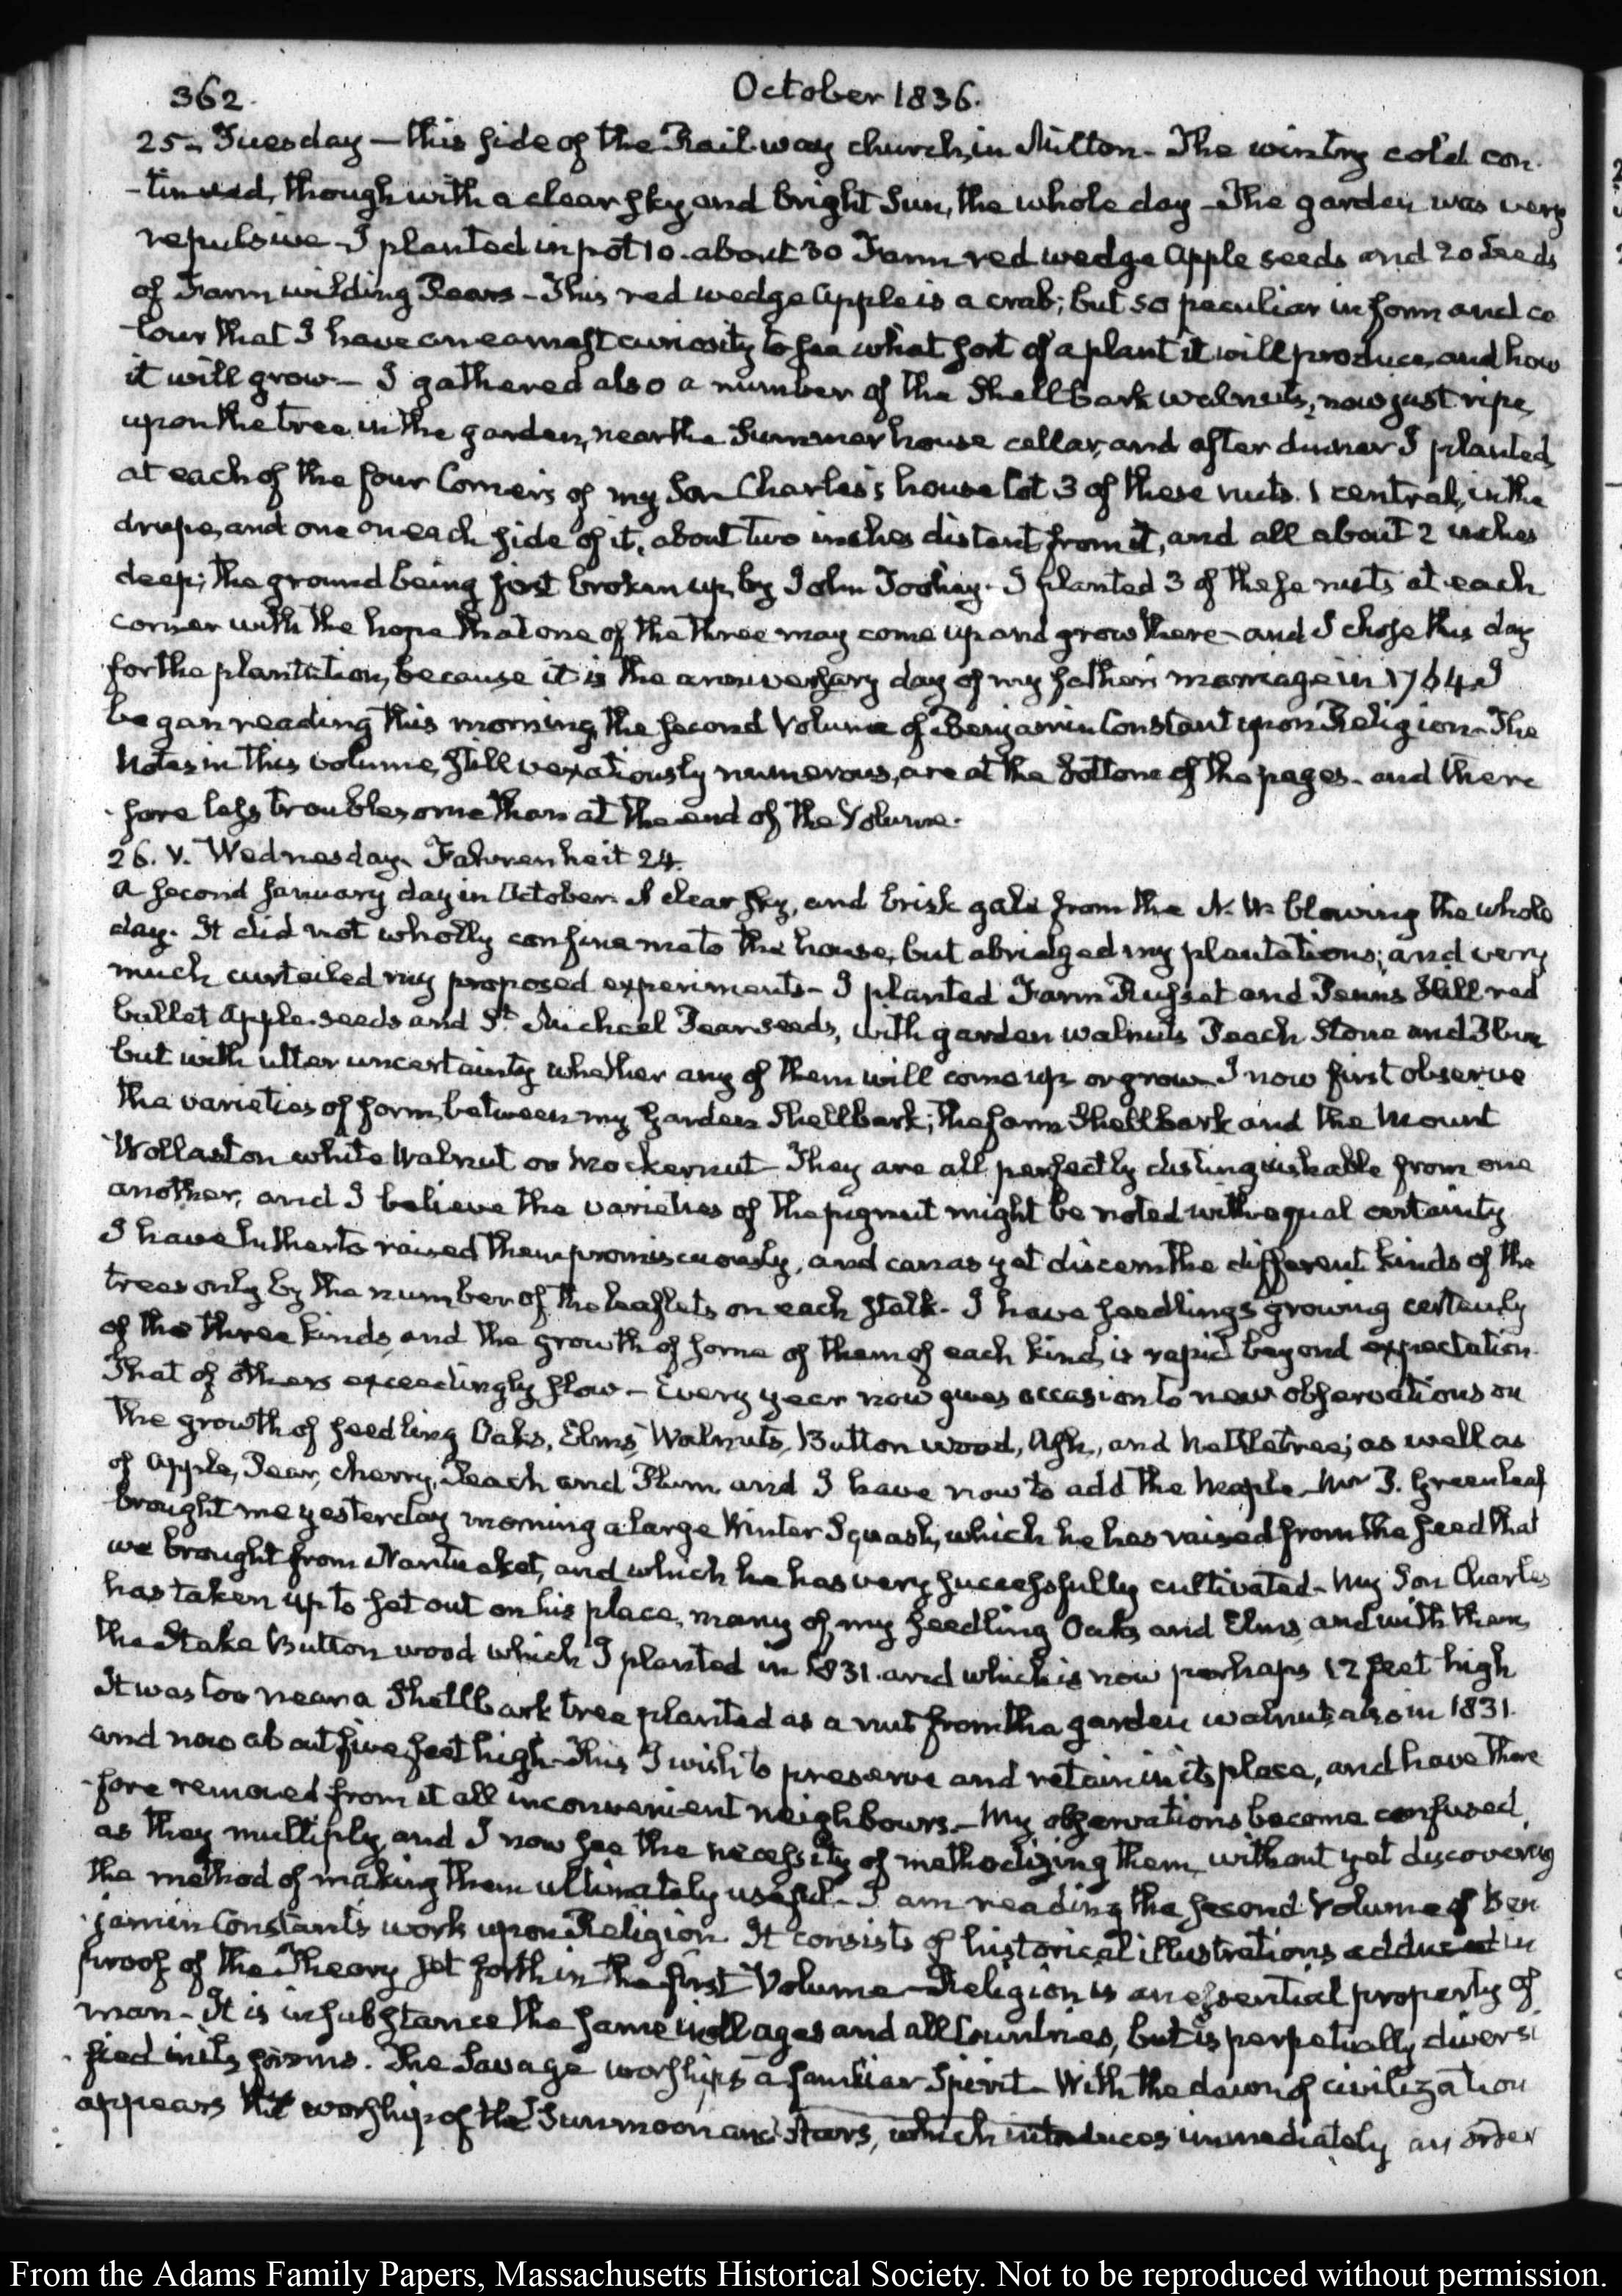 362.
October 1836.
25. Tuesday — this side of the Railway church, in Milton. The wintry cold con-
-tinued, though with a clear sky, and bright Sun, the whole day - The garden was very
repulsive - I planted in pot 10. about 30 Farm red wedge Apple seeds and 20 seeds
of Farm wilding Pears - This red wedge Apple is a crab; but so peculiar in form and co
-lour that I have an earnest curiosity to see what sort of a plant it will produce, and how
it will grow - I gathered also a number of the Shellbark walnuts, now just ripe,
upon the tree in the garden, near the Summer house cellar, and after dinner I planted,
at each of the four Corners of my Son Charles's house lot 3 of these nuts. 1 central, in the
drupe, and one on each side of it, about two inches distant from it, and all about 2 inches
deep; the ground being first broken up, by John I planted 3 of these nuts at each
corner with the hope that one of the three may come up and grow there - and I chose this day
for the plantation, because it is the anniversary day of my father's marriage in 1764. I
began reading this morning, the second Volume of Benjamin Constant upon Religion - The
Notes in this volume, still vexatiously numerous, are at the bottom of the pages - and there
-fore less troublesome than at the end of the Volume.
26. V. Wednesday. Fahrenheit 24.
A second January day in October. A clear sky, and brisk gale from the N.W. blowing the whole
day. It did not wholly confine me to the house, but abridged my plantations; and very
much curtailed my proposed experiments - I planted Farm Russet and Penns Hill red
bullet Apple-seeds and St. Michael Pear seeds, with garden walnuts Peach Stone and Plum
but with utter uncertainty whether any of them will come up or grow - I now first observe
the varieties of form, between my garden Shellbark; the farm Shellbark and the Mount
Wollaston white Walnut or Mockernut - They are all perfectly distinguishable from one
another, and I believe the varieties of the pignut might be noted with equal certainty
I have hitherto raised them promiscuously, and can as yet discern the different kinds of the
trees only by the number of the leaflets on each stalk. I have seedlings growing certainly
of the three kinds, and the growth of some of them of each kind, is rapid beyond expectation.
That of others exceedingly slow - Every year now gives occasion to new observations on
the growth of seedling Oaks, Elms, Walnuts, Button wood, Ash, and Nettletree; as well as
of Apple, Pear, Cherry, Peach and Plum. and I have now to add the Maple - Mr Greenleaf
brought me yesterday morning a large Winter Squash, which he has raised from the seed that
we brought from Nantucket, and which he has very successfully cultivated - My Son Charles
has taken up to set out on his place, many of my seedling Oaks and Elms, and with them,
the Stake Button wood which I planted in 1831. and which is now perhaps 12 feet high
It was too near a Shellbark tree planted as a nut from the garden walnut, also in 1831.
and now about five feet high. This I wish to preserve and retain in its place, and have there
-fore removed from it all inconvenient neighbours - My observations become confused,
as they multiply, and I now see the necessity of methodizing them, without yet discovering
the method of making them ultimately useful - I am reading the second Volume of Ben
-jamin Constant's work upon Religion. It consists of historical illustrations adduced in
proof of the Theory set forth in the first Volume - Religion is an essential property of
man - It is in substance the same in all ages and all Countries, but is perpetually diversi
-fied in its forms. The Savage worships a familiar Spirit - With the dawn of civilization
appears the worship of the Sun moon and Stars, which introduces immediately an order
From the Adams Family Papers, Massachusetts Historical Society. Not to be reproduced without permission.